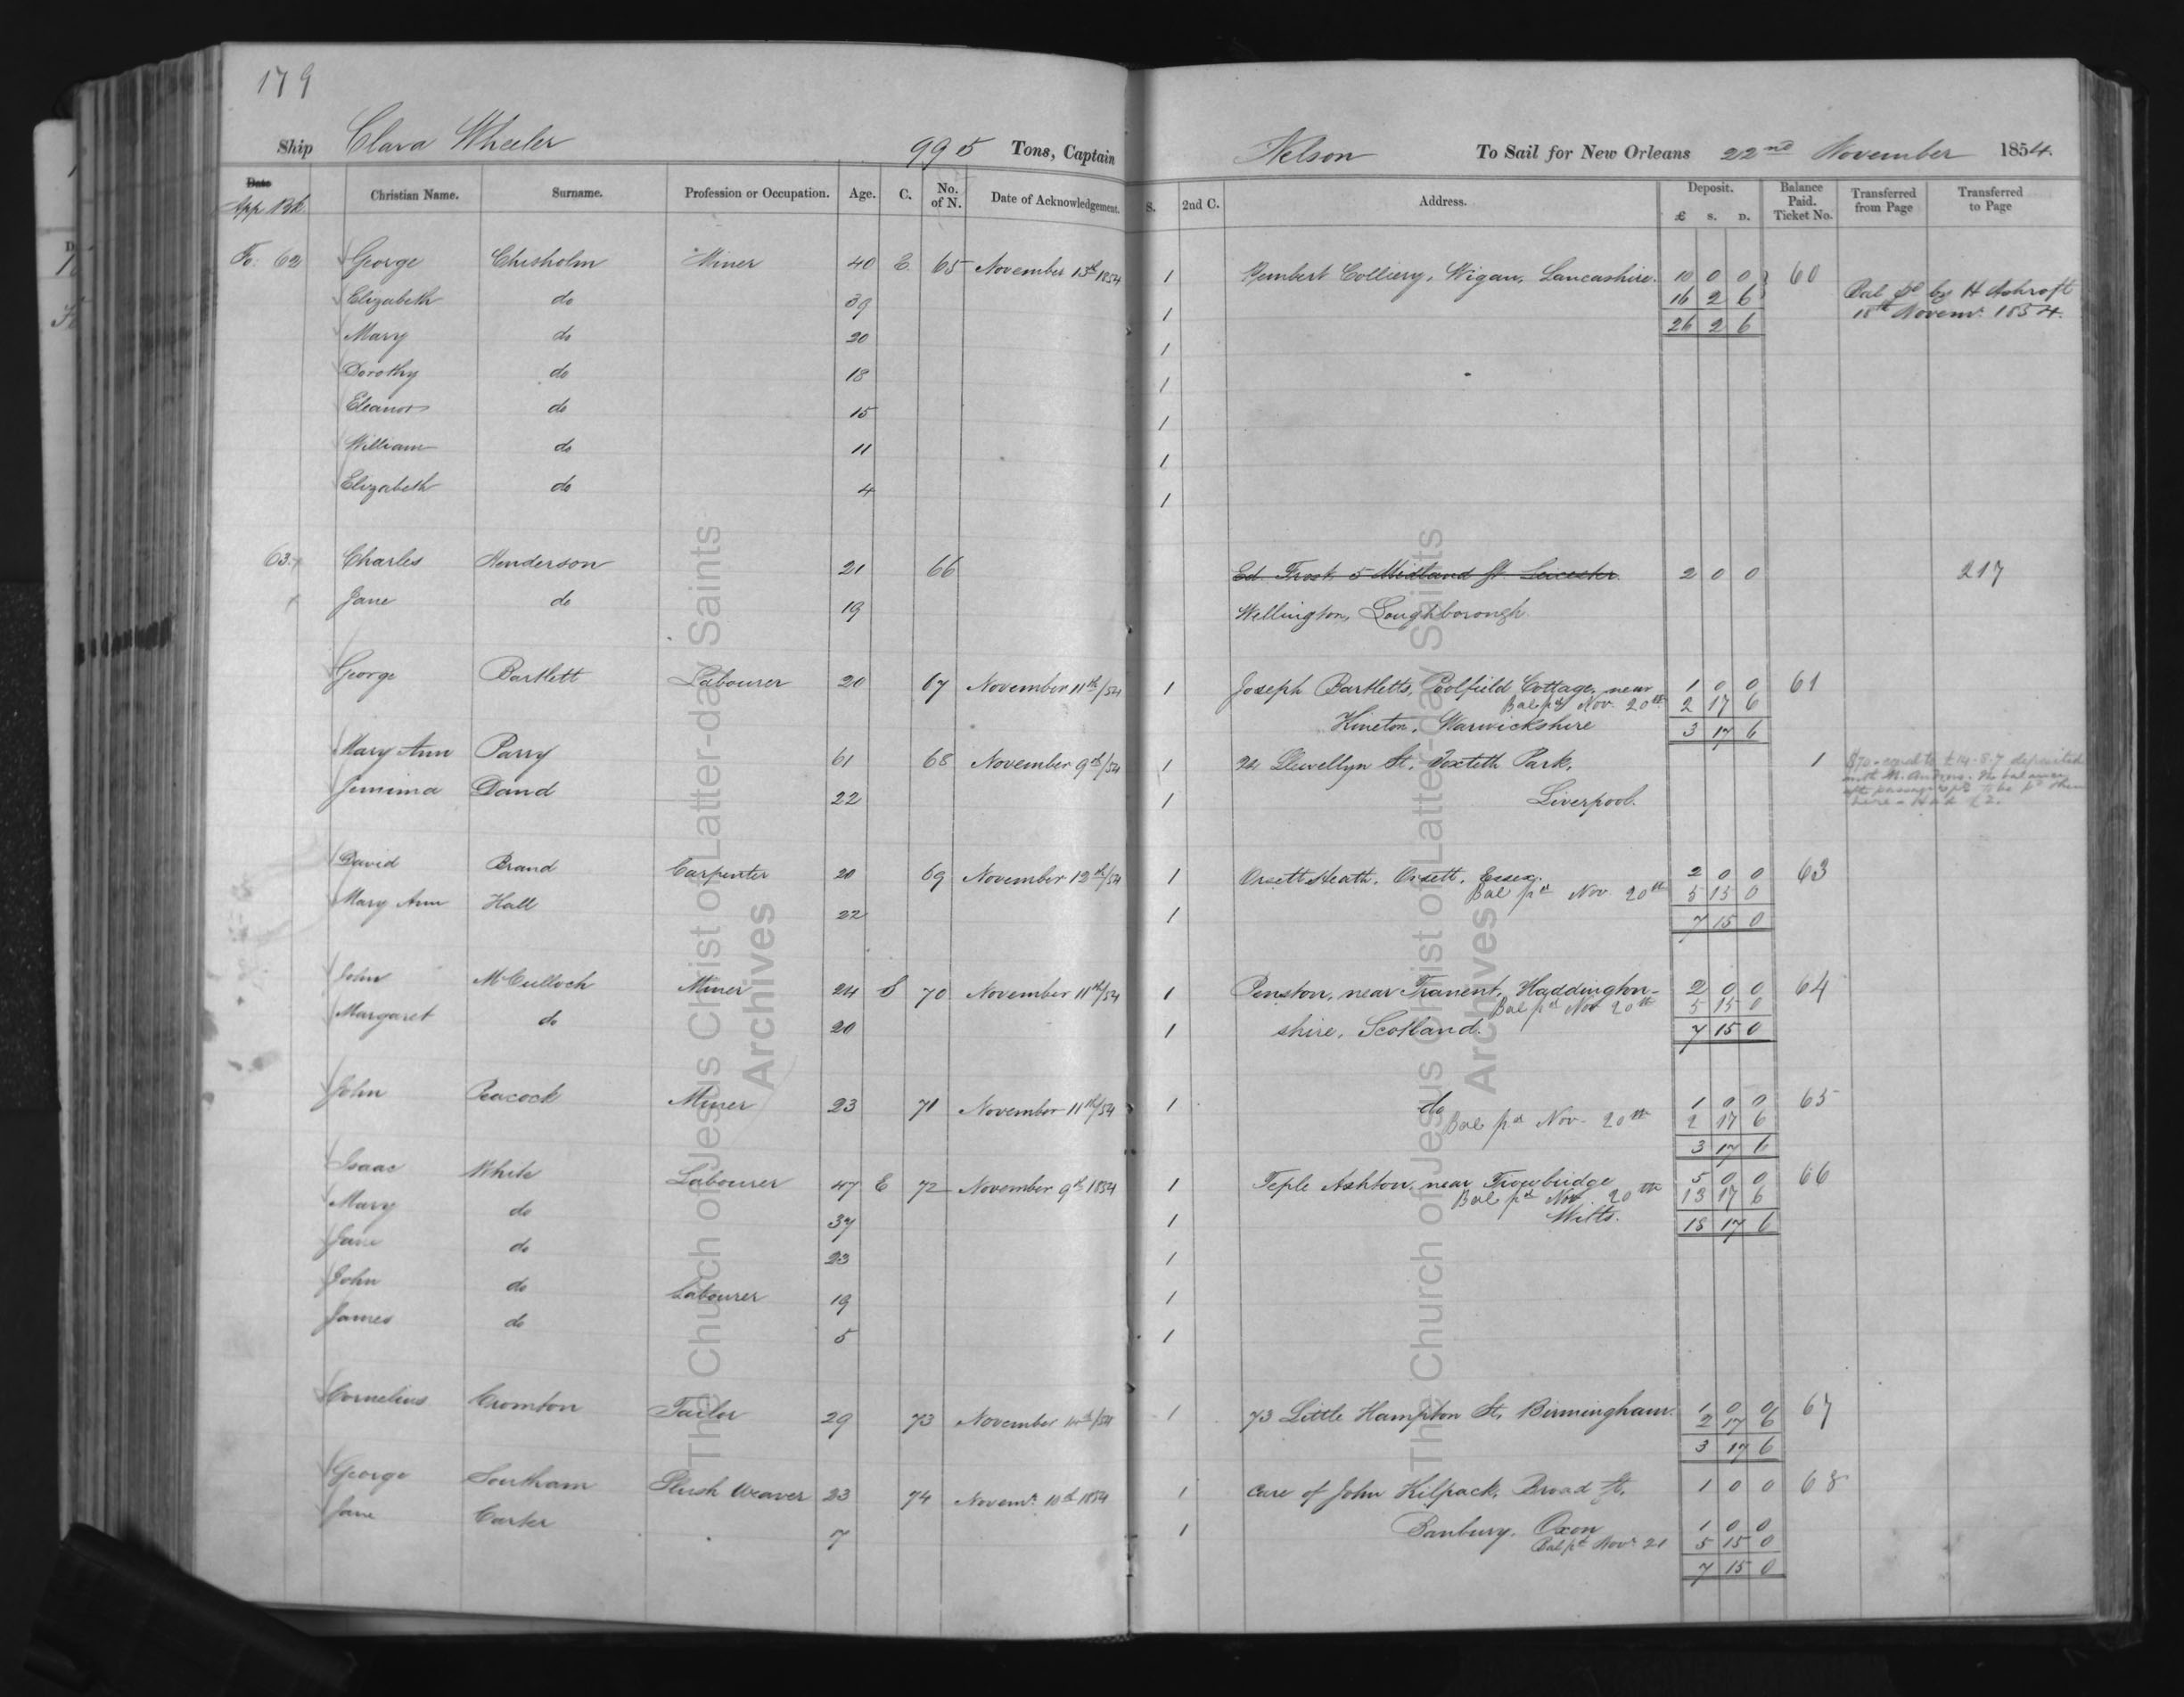 179
Ship Clara Wheeler 995 Tons, Captain Nelson To Sail for New Orleans 22nd November 1854.
Date
App Bk Christian Name. Surname. Profession or Occupation. Age. C. No. of N. Date of Acknowledgement. S. 2nd C. Address. Deposit. £ s. D. Balance Paid. Ticket No. Transferred from Page Transferred to Page
Fo. 62 George Chisholm Miner 40 E 65 November 13th 1854 1 Pembert Colliery, Wigan, Lancashire. 10 0 0 60
Elizabeth do 39 1 16 2 6 Bal pd by H Ashroft
Mary do 20 1 26 2 6 18th Novemr. 1854.
Dorothy do 18 1
Eleanor do 15 1
William do 11 1
Elizabeth do 4 1
63 Charles Henderson 21 66 Ed. Frost 5 Midland St Leicester 2 0 0 217
Jane do 19 Wellington, Loughborough
George Bartlett Labourer 20 67 November 11th/54 1 Joseph Bartletts, Poolfield Cottage, near 1 0 0 61
Bal pd Nov. 20th 2 17 6
Kineton, Warwickshire 3 17 6
Mary Ann Parry 61 68 November 9th/54 1 22 Llewellyn St. Toxteth Park, 1
Jemima Dand 22 1 Liverpool.
David Brand Carpenter 20 69 November 12th/54 1 Orsett Heath, Orsett, Essex. 2 0 0 63
Bal pd Nov. 20th 5 15 0
Mary Ann Hall 22 1 7 15 0
John McCulloch Miner 24 S 70 November 11th/54 1 Penston, near Tranent, Haddington- 2 0 0 64
Bal pd Nov 20th 5 15 0
Margaret do 20 1 shire, Scotland. 7 15 0
John Peacock Miner 23 71 November 11th/54 1 do 1 0 0 65
Bal pd Nov. 20th 2 17 6
3 17 6
Isaac White Labourer 47 E 72 November 9th 1854 1 Teple Ashton, near Trowbridge 5 0 0 66
Bal pd Nov. 20th 13 17 6
Mary do 37 1 Wilts. 18 17 6
Jane do 23 1
John do Labourer 19 1
James do 5 1
Cornelius Cromton Tailor 29 73 November /54 1 73 Little Hampton St, Birmingham. 1 0 0 67
2 17 6
3 17 6
George Southam Plush Weaver 23 74 Novemr. 10th 1854 1 Care of John Kilpack, Broad St, 1 0 0 68
Jane Carter 7 1 Banbury, Oxon 1 0 0
Bal pd Novr 21 5 15 0
7 15 0
The Church of Jesus Christ of Latter-day Saints
Archives
The Church of Jesus Christ of Latter-day Saints
Archives